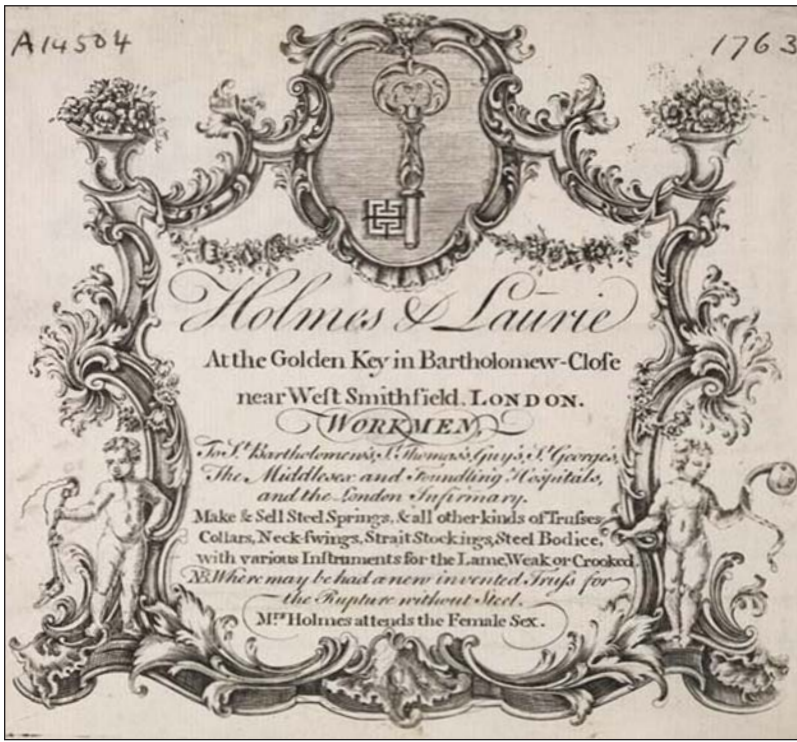 A14504
1763
Holmes & Laurie
At the Golden Key in Bartholomew-Close
near West Smithfield, LONDON.
WORKMEN,
To St. Bartholomew's, St. Thomas's, Guy's, St. George's,
The Middlesex and Foundling Hospitals,
and the London Infirmary.
Make & Sell Steel Springs, & all other kinds of Trusses
Collars, Neck-swings, Strait Stockings, Steel Bodice,
with various Instruments for the Lame, Weak or Crooked.
NB. Where may be had a new invented Truss for
the Rupture without Steel.
Mrs. Holmes attends the Female Sex.